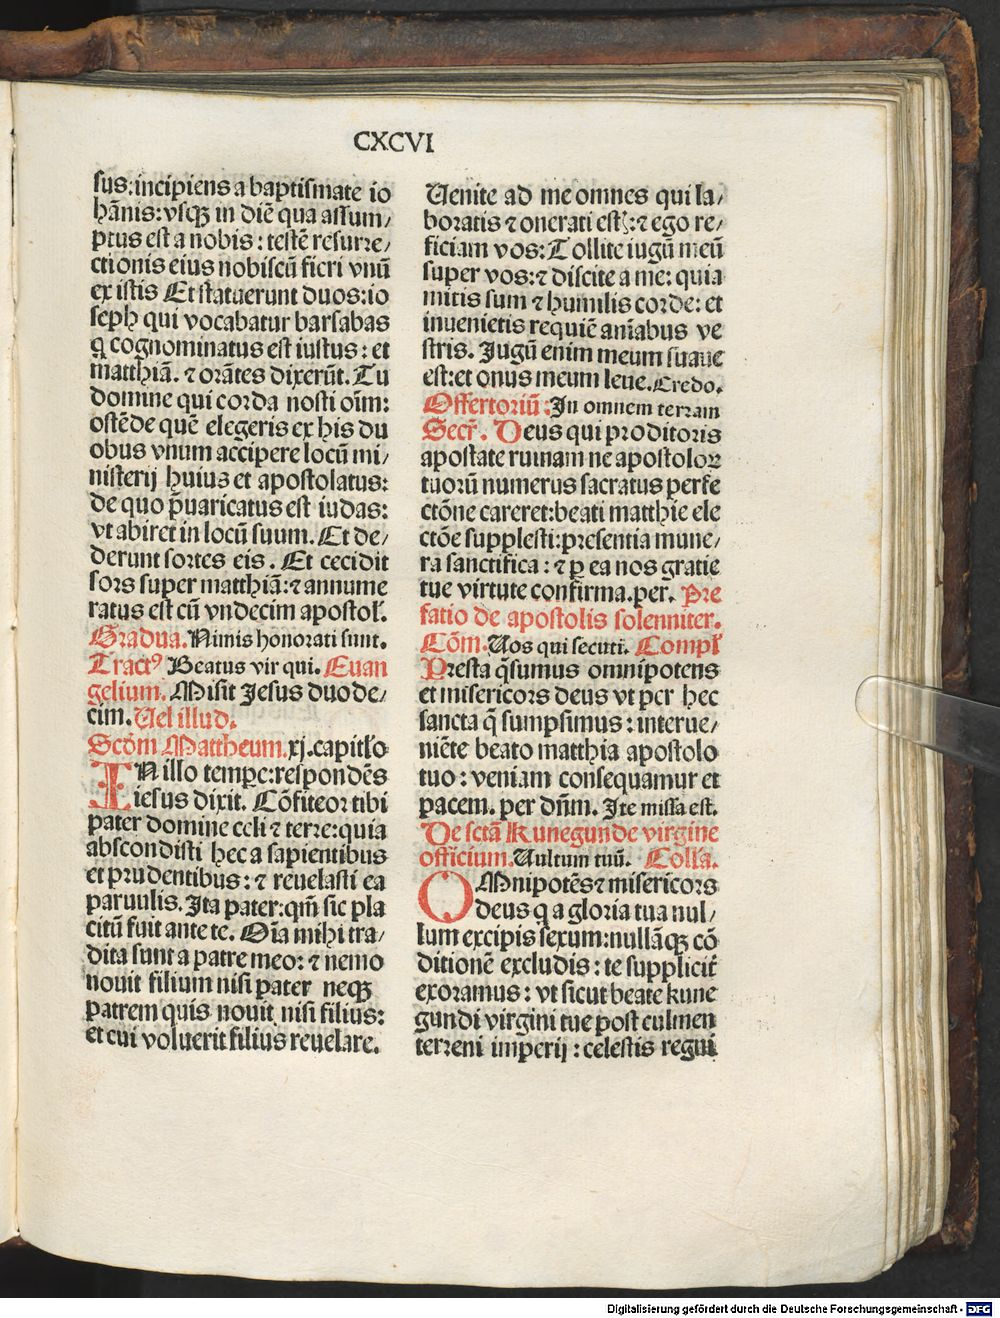 CXCVI
sus:incipiens a baptismate io
hãnis:vsqꝫ in diē qua assum/
ptus est a nobis: testē resurre/
ctionis eius nobiscū fieri vnū
ex istis Et statuerunt duos:io
seph qui vocabatur barsabas
q̃ cognominatus est iustus: et
matthiã. ⁊ orãtes dixerũt. Tu
domine qui corda nosti oīm:
ostēde quē elegeris ex his du
obus vnum accipere locũ mi/
nisterij huius et apostolatus:
de quo p̃uaricatus est iudas:
vt abiret in locũ suum. Et de/
derunt sortes eis. Et cecidit
sors super matthiã:⁊ annume
ratus est cũ vndecim apostol'.
Gradua. Nimis honorati sunt.
Tractꝰ Beatus vir qui. Euan
gelium. Misit Jesus duode/
cim. Uel illud.
Scd̃m Mattheum.xj.capitl'o
IN illo tempe:respondēs
iesus dixit. Cõfiteor tibi
pater domine celi ⁊ terre:quia
abscondisti hec a sapientibus
et prudentibus: ⁊ reuelasti ea
paruulis. Ita pater:qm̃ sic pla
citũ fuit ante te. Oĩa mihi tra/
dita sunt a patre meo: ⁊ nemo
nouit filium nisi pater neqꝫ
patrem quis nouit nisi filius:
et cui voluerit filius reuelare.
Uenite ad me omnes qui la/
boratis ⁊ onerati estꝭ:⁊ ego re/
ficiam vos: Tollite iugũ meũ
super vos:⁊ discite a me: quia
mitis sum ⁊ humilis corde: et
inuenietis requiē anĩabus ve
stris. Jugũ enim meum suaue
est:et onus meum leue. Credo.
Offertoriũ: In omnem terram
Secr̃. Deus qui proditoris
apostate ruinam ne apostoloꝝ
tuorũ numerus sacratus perfe
ctõne careret:beati matthie ele
ctõe supplesti:presentia mune/
ra sanctifica: ⁊ ꝑ ea nos gratie
tue virtute confirma.per. Pre
fatio de apostolis solenniter.
Cõm. Uos qui secuti. Compl'
Presta q̃sumus omnipotens
et misericors deus vt per hec
sancta q̃ sumpsimus: interue/
niēte beato matthia apostolo
tuo: veniam consequamur et
pacem. per dñm. Ite missa est.
De sctã Kunegunde virgine
officium. Uultum tuũ. Colla.
OMnipotēs ⁊ misericors
deus q̃ a gloria tua nul/
lum excipis sexum:nullãqꝫ cõ
ditionē excludis: te supplicit̃
exoramus: vt sicut beate kune
gundi virgini tue post culmen
terreni imperij: celestis regni
Digitalisierung gefördert durch die Deutsche Forschungsgemeinschaft - DFG